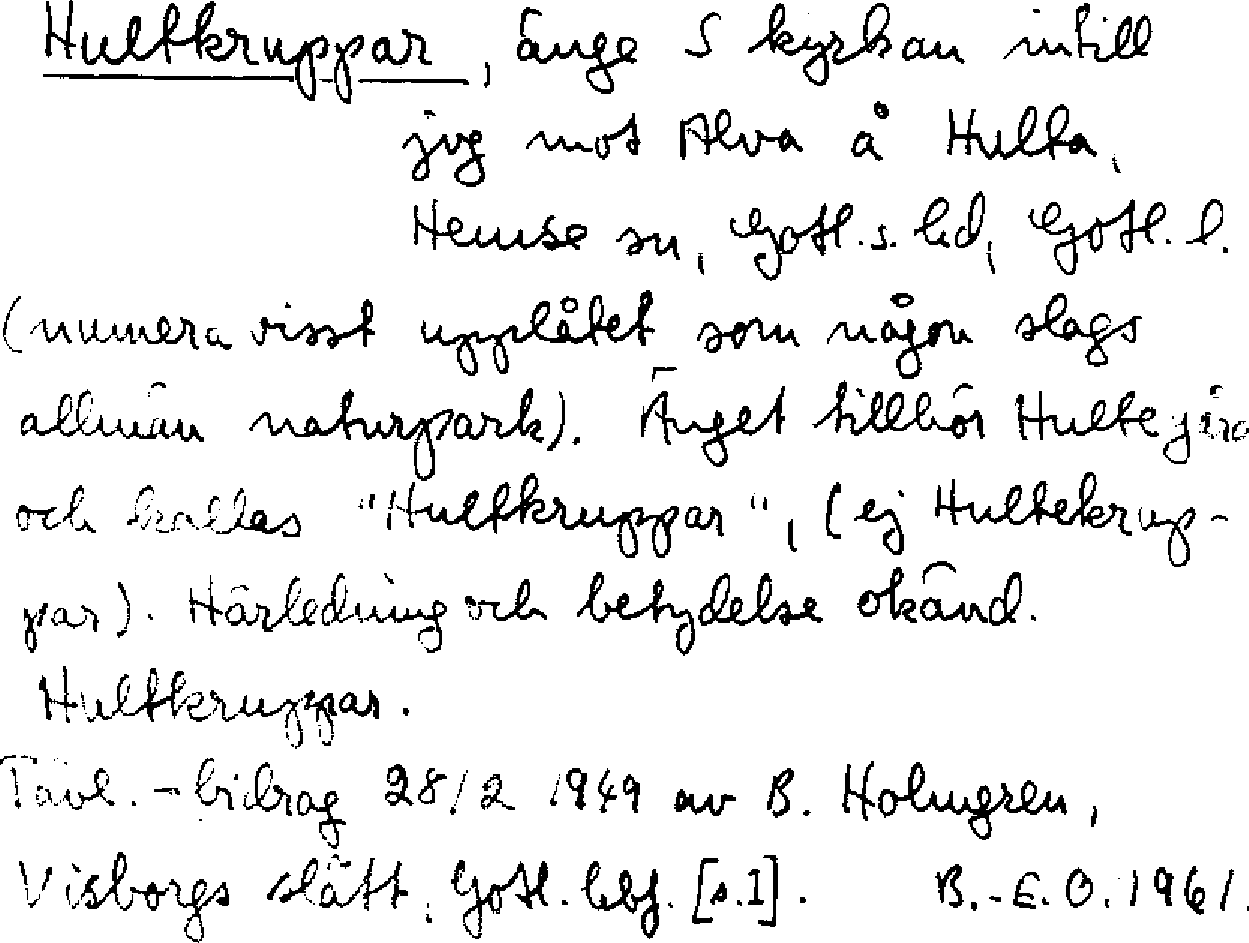 Hultkruppar, änge S kyrkan intill
jvg mot Alva å Hulta,
Hemse sn, Gotl. s. hd, Gotl. l.
(numera visst upplåtet som någon slags
allmän naturpark). Änget tillhör Hulte
och kallas "Hultkruppar", (ej Hultekrup-
par). Härledning och betydelse okänd.
Hultkruppar.
Tävl.-bidrag 28/2 1949 av B. Holmgren,
Visborgs slätt, Gotl. [s.1]. B.-E.O. 1961.